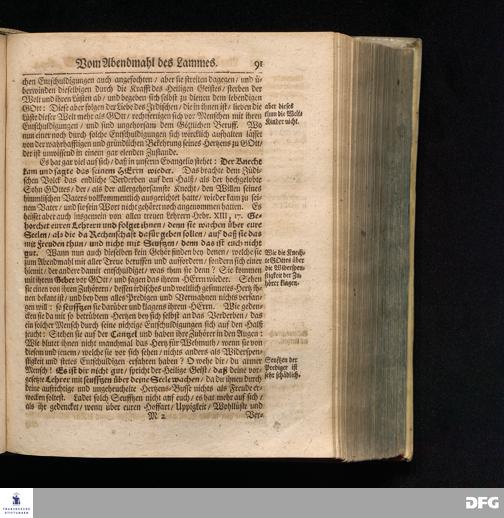 Vom Abendmahl des Lammes. 91
chen Entschuldigungen auch angefochten / aber sie streiten dagegen / und ü-
berwinden dieselbigen durch die Krafft des Heiligen Geistes / sterben der
Welt und ihren Lüsten ab / und begeben sich selbst zu dienen dem lebendigen
GOtt: Diese aber folgen der Liebe des Irdischen / die in ihnen ist / lieben die
Lüste dieser Welt mehr als GOtt / rechtfertigen sich vor Menschen mit ihren
Entschuldigungen / und sind ungehorsam dem Göttlichen Beruff. Wo
nun einer noch durch solche Entschuldigungen sich würcklich aufhalten lässet
von der wahrhafftigen und gründlichen Bekehrung seines Hertzens zu GOtt /
der ist unwissend in einem gar elenden Zustande.
Es hat gar viel auf sich / daß in unserm Evangelio stehet: Der Knecht
kam und sagte das seinem HErrn wieder. Das brachte dem Jüdi-
schen Volck das endliche Verderben auf den Halß / als der hochgelobte
Sohn GOttes / der / als der allergehorsamste Knecht / den Willen seines
himmlischen Vaters vollkömmentlich ausgerichtet hatte / wieder kam zu sei-
nem Vater / und sie sein Wort nicht gehöret noch angenommen hatten. Es
heisset aber auch insgemein von allen treuen Lehrern Hebr. XIII, 17. Ge-
horchet euren Lehrern und folget ihnen / denn sie wachen über eure
Seelen / als die da Rechenschafft dafür geben sollen / auf daß sie das
mit Freuden thun / und nicht mit Seufftzen / denn das ist euch nicht
gut. Wann nun auch dieselben kein Gehör finden bey denen / welche sie
zum Abendmahl mit aller Treue beruffen und auffordern / sondern sich einer
hiemit / der andere damit entschuldiget / was thun sie denn? Sie kommen
mit ihrem Gebet vor GOtt / und sagen das ihrem HErrn wieder. Sehen
sie einen von ihren Zuhörern / dessen irrdisches und weltlich gesinnetes Hertz ih-
nen bekant ist / und bey dem alles Predigen und Vermahnen nichts verfan-
gen will: so seufftzen sie darüber und klagens ihrem HErrn. Wie geden-
cken sie da mit so betrübtem Hertzen bey sich selbst an das Verderben / das
ein solcher Mensch durch seine nichtige Entschuldigungen sich auf den Halß
zeucht: Stehen sie auf der Cantzel und haben ihre Zuhörer in den Augen:
Wie blutet ihnen nicht manchmal das Hertz für Wehmuth / wenn sie von
diesem und jenem / welche sie vor sich sehen / nichts anders als Widerspen-
stigkeit und stetes Entschuldigen erfahren haben? O wehe dir / du armer
Mensch! Es ist dir nicht gut / spricht der Heilige Geist / daß deine vor-
gesetzte Lehrer mit seufftzen über deine Seele wachen / da du ihnen durch
deine aufrichtige und ungeheuchelte Hertzens-Busse nichts als Freude er-
wecken soltest. Ladet solch Seufftzen nicht auf euch / es hat mehr auf sich /
als ihr gedencket / wenn über euren Hoffart / Uppigkeit / Wohllüste und
M 2 Ver-
aber dieses
thun die Welt-
Kinder nicht.
Wie die Knech-
te GOttes über
die Widerspen-
stigkeit der Zu-
hörer klagen.
Seufftzen der
Prediger ist
sehr schädlich.
FRANCKESCHE
STIFTUNGEN
DFG